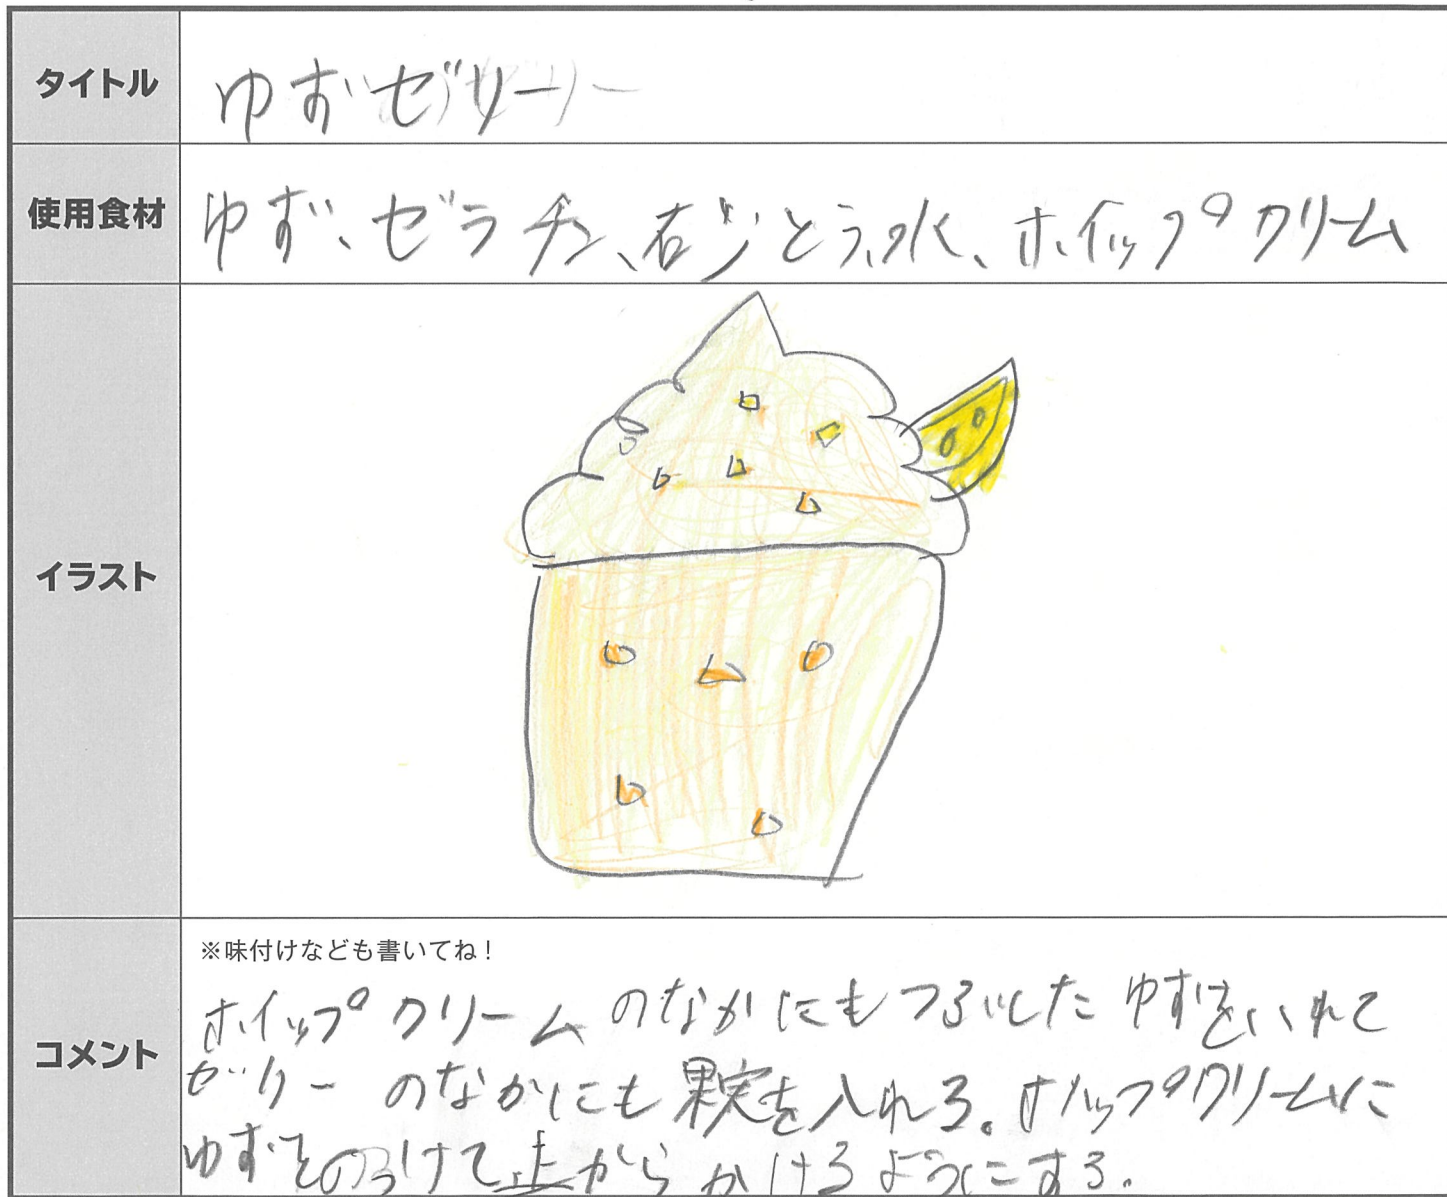 タイトル
ゆずゼリー
使用食材
ゆず、ゼラチン、右少とう、水、ホイップクリーム
イラスト
コメント
※味付けなども書いてね！
ホイップクリームのなかにもつぶしたゆずをいれて
ゼリーのなかにも果実を入れる。ホイップクリームに
ゆずをつけて上からかけるようにする。